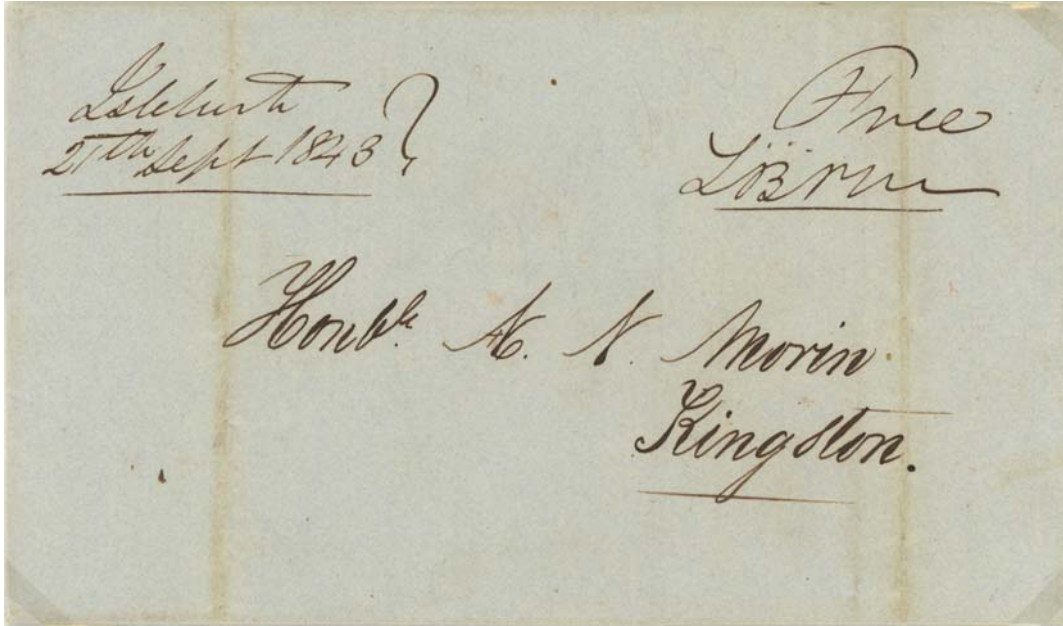 Isleverte
27th Sept 1843
Free
LB PM
Honble. A. N. Morin
Kingston.